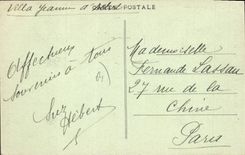 Villa Jeanne d'
POSTALE
Affectueux
souvenirs à tous
Suz Hébert
Mademoiselle
Fernande Lassau
27 rue de la
Chine
Paris